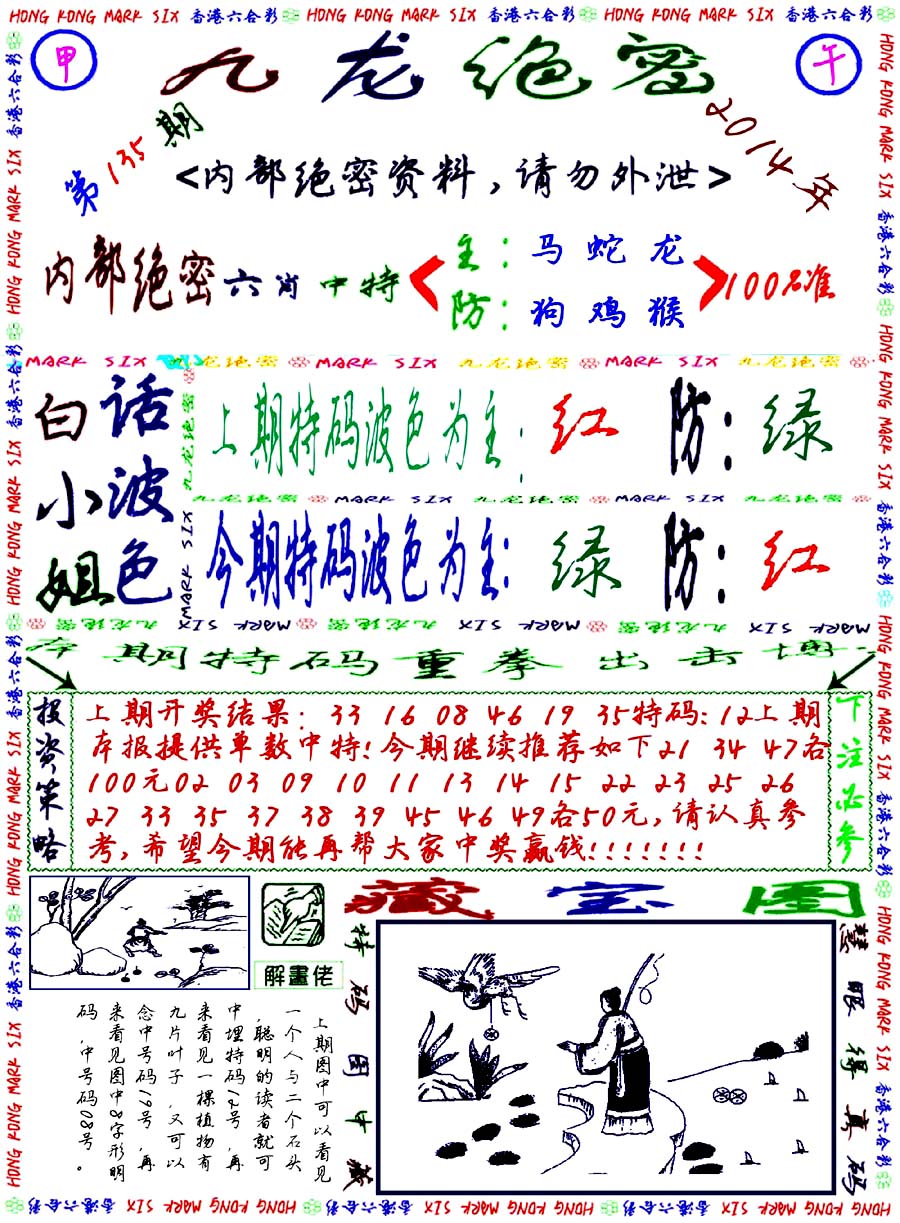 HONG KONG MARK SIX 香港六合彩 HONG KONG MARK SIX 香港六合彩 HONG KONG MARK SIX 香港六合彩
甲
九龙绝密
午
第135期
2014年
<内部绝密资料,请勿外泄>
内部绝密六肖中特
主:马蛇龙
防:狗鸡猴
100%准
MARK SIX 九龙绝密 MARK SIX 九龙绝密 MARK SIX 九龙绝密
白话小波姐色
上期特码波色为主:红 防:绿
九龙绝密 MARK SIX 九龙绝密 MARK SIX 九龙绝密
今期特码波色为主:绿 防:红
九龙绝密 MARK SIX 九龙绝密 MARK SIX 九龙绝密 MARK SIX
本期特码重拳出击博
投资策略
上期开奖结果:33 16 08 46 19 35特码:12上期
本报提供单数中特!今期继续推荐如下21 34 47各
100元02 03 09 10 11 13 14 15 22 23 25 26
27 33 35 37 38 39 45 46 49各50元,请认真参
考,希望今期能再帮大家中奖赢钱!!!!!!!
下注必参
藏宝图
解畫佬
特码图中藏
慧眼得真码
上期图中可以看见
一个人与二个石头
,聪明的读者就可
中埋特码12号,再
来看见一棵植物有
九片叶子,又可以
念中号码19号,再
来看见图中8字形明
码,中号码08号。
HONG KONG MARK SIX 香港六合彩 HONG KONG MARK SIX 香港六合彩 HONG KONG MARK SIX 香港六合彩